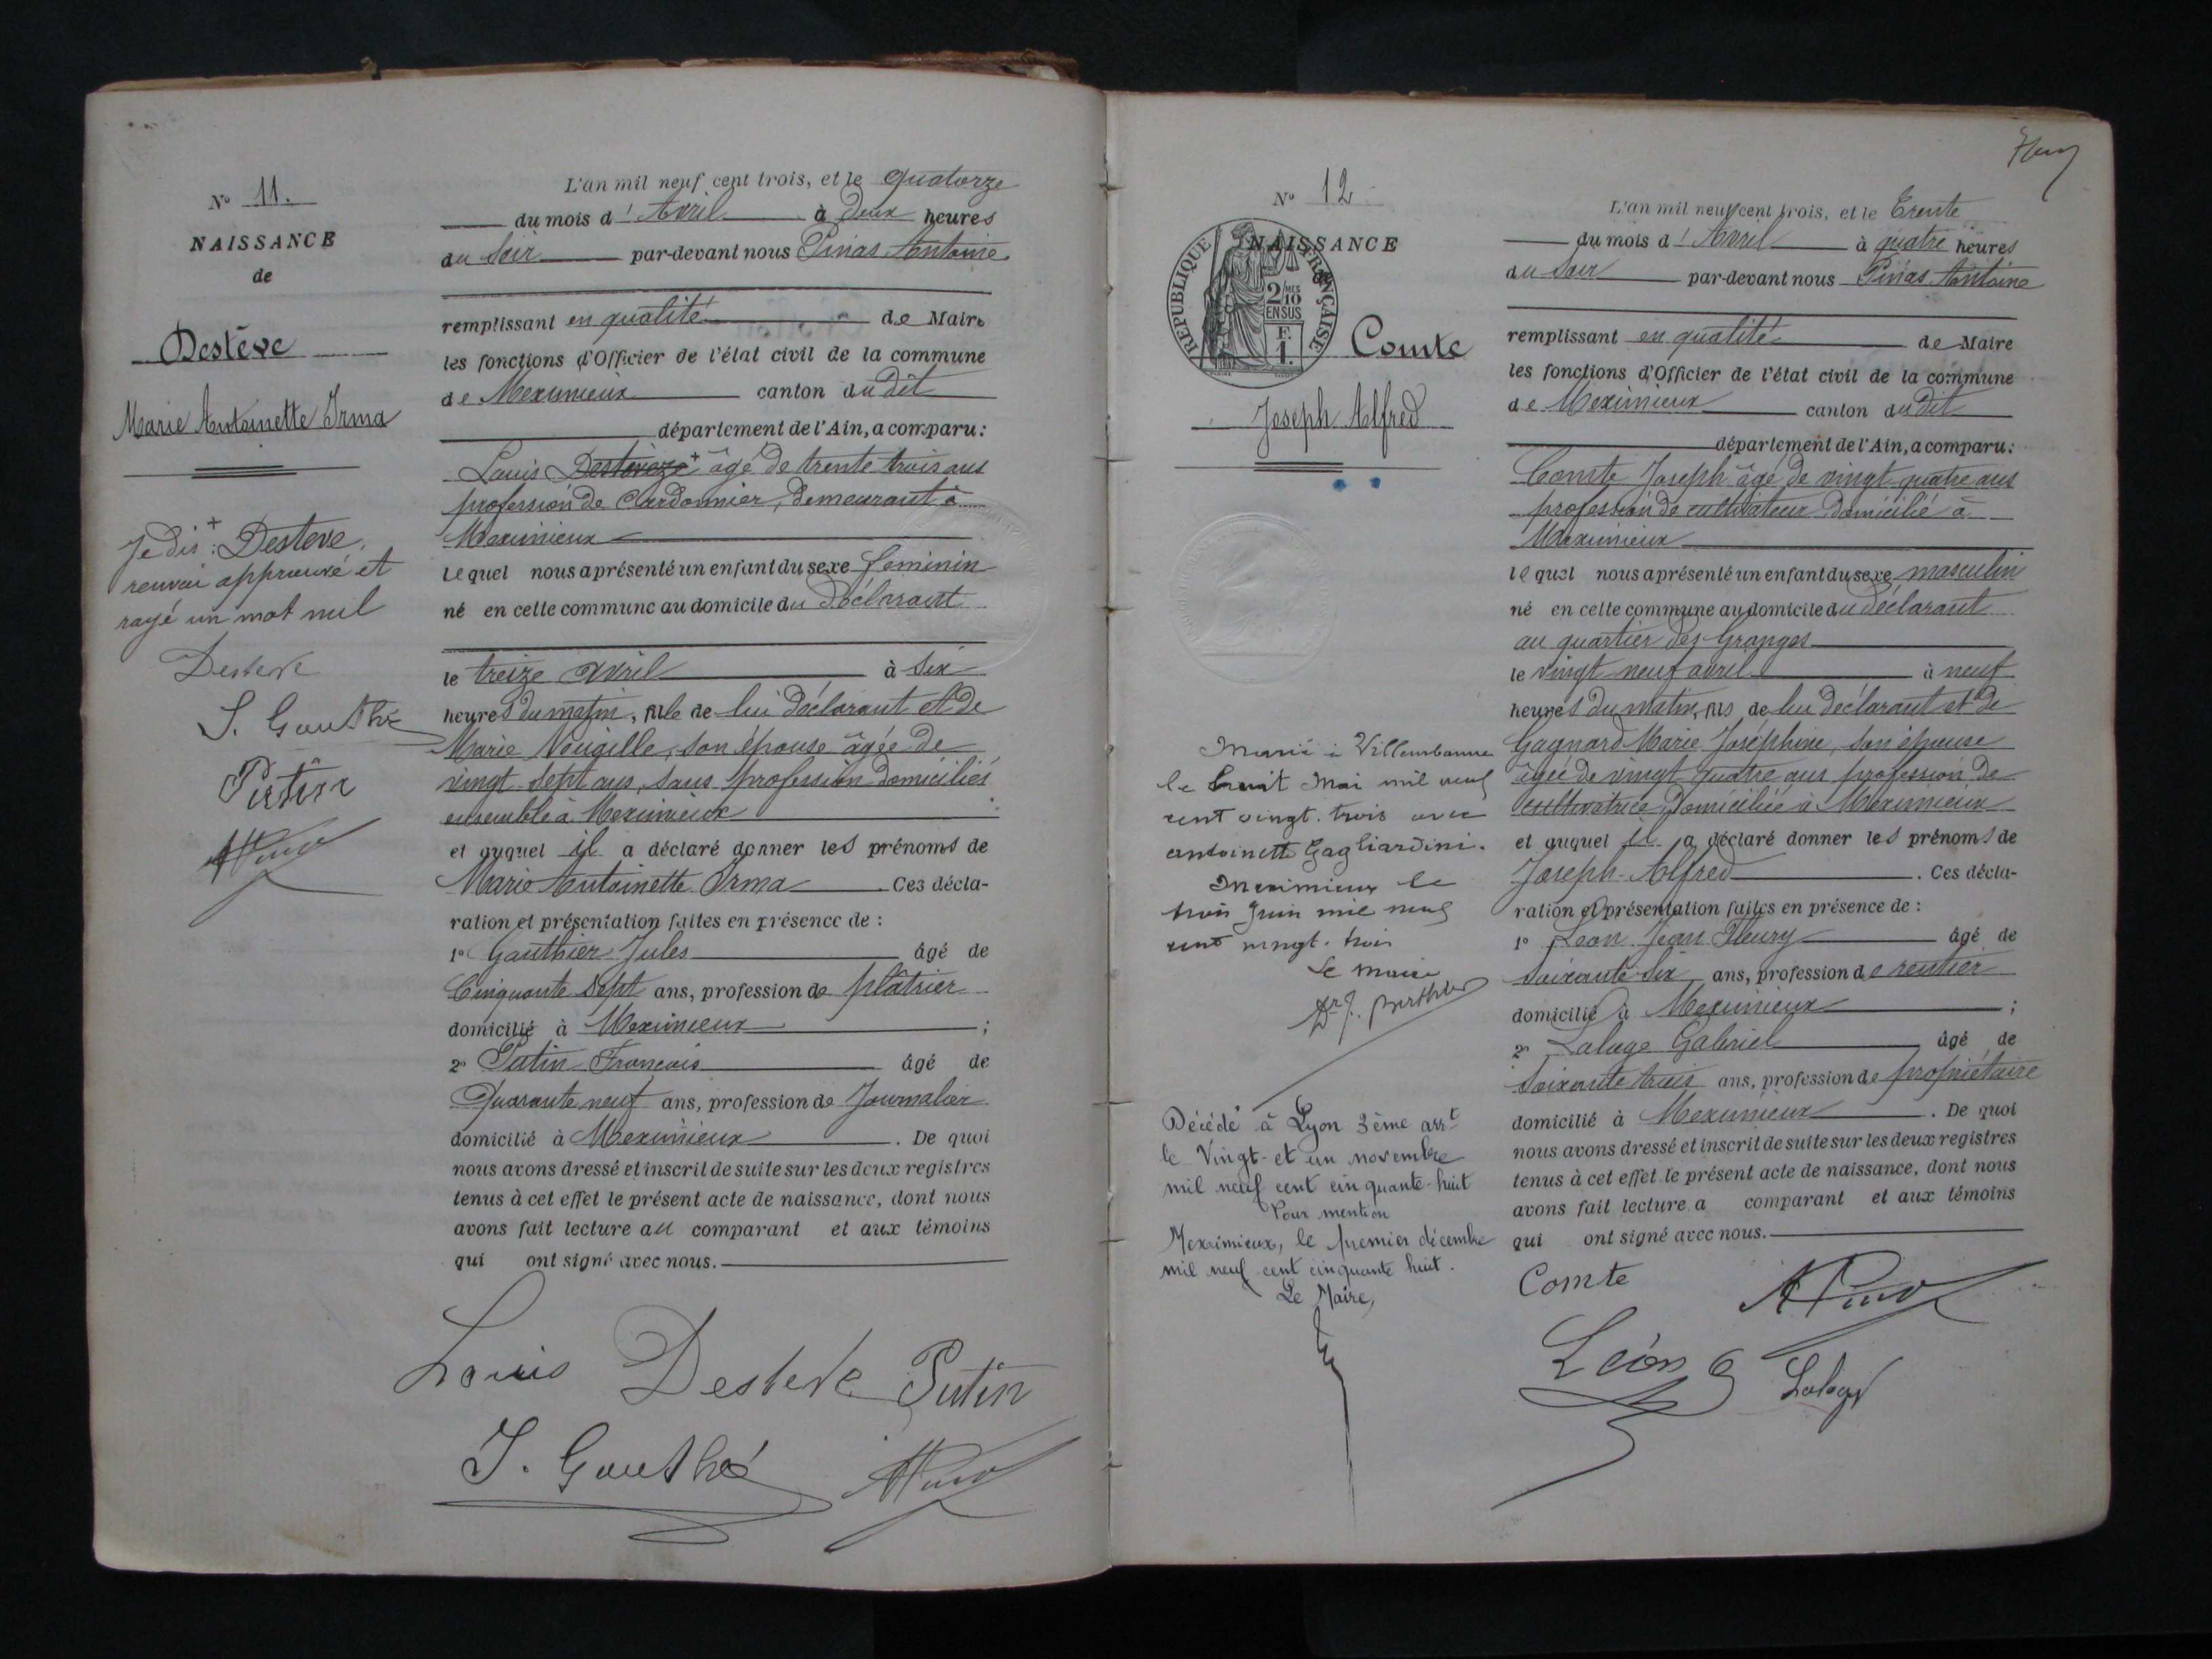 N° 11.
NAISSANCE
de
Destève
Marie Antoinette Irma
Je dis + Desteve,
renvoi approuvé et
rayé un mot nul
Desteve
J. Gauthé
Putin
L'an mil neuf cent trois, et le quatorze
du mois d'Avril à deux heures
du Soir par-devant nous Pinas Antoine
remplissant en qualité de Maire
les fonctions d'Officier de l'état civil de la commune
de Meximieux canton du dit
département de l'Ain, a comparu :
Louis Destéveze + âgé de trente trois ans
profession de Cordonnier, demeurant à
Meximieux
lequel nous a présenté un enfant du sexe féminin
né en cette commune au domicile du Déclarant
le treize avril à six
heures du matin, fille de lui déclarant et de
Marie Nougille, son épouse âgée de
vingt sept ans, sans profession domiciliés
ensemble à Meximieux
et auquel il a déclaré donner les prénoms de
Marie Antoinette Irma Ces décla-
ration et présentation faites en présence de :
1° Gauthier Jules âgé de
Cinquante sept ans, profession de plâtrier
domicilié à Meximieux ;
2° Putin François âgé de
Quarante neuf ans, profession de Journalier
domicilié à Meximieux . De quoi
nous avons dressé et inscrit de suite sur les deux registres
tenus à cet effet le présent acte de naissance, dont nous
avons fait lecture au comparant et aux témoins
qui ont signé avec nous.
Louis Desteve Putin
J. Gauthé
N° 12
NAISSANCE
de
REPUBLIQUE FRANÇAISE
2/10 MES
EN SUS
F. 1
Comte
Joseph Alfred
Marié à Villeurbanne
le huit Mai mil neuf
cent vingt-trois avec
Antoinette Gagliardini.
Meximieux le
trois Juin mil neuf
cent vingt-trois
Le maire
Dr J. Berthier
Décédé à Lyon 3ème arrt
le Vingt-et un novembre
mil neuf cent cinquante-huit
Pour mention
Meximieux, le premier décembre
mil neuf cent cinquante huit.
Le Maire,
L'an mil neuf cent trois, et le Trente
du mois d'Avril à quatre heures
du Soir par-devant nous Pinas Antoine
remplissant en qualité de Maire
les fonctions d'Officier de l'état civil de la commune
de Meximieux canton du dit
département de l'Ain, a comparu :
Comte Joseph âgé de vingt quatre ans
profession de cultivateur domicilié à
Meximieux
lequel nous a présenté un enfant du sexe masculin
né en cette commune au domicile du déclarant
au quartier des Granges
le vingt neuf avril à neuf
heures du matin, fils de lui déclarant et de
Gaynard Marie Joséphine, son épouse
âgée de vingt quatre ans profession de
cultivatrice, domiciliée à Meximieux
et auquel il a déclaré donner les prénoms de
Joseph Alfred . Ces décla-
ration et présentation faites en présence de :
1° Léon Jean Fleury âgé de
Soixante six ans, profession de rentier
domicilié à Meximieux ;
2° Laluge Gabriel âgé de
Soixante trois ans, profession de propriétaire
domicilié à Meximieux . De quoi
nous avons dressé et inscrit de suite sur les deux registres
tenus à cet effet le présent acte de naissance, dont nous
avons fait lecture a comparant et aux témoins
qui ont signé avec nous.
Comte
Léon